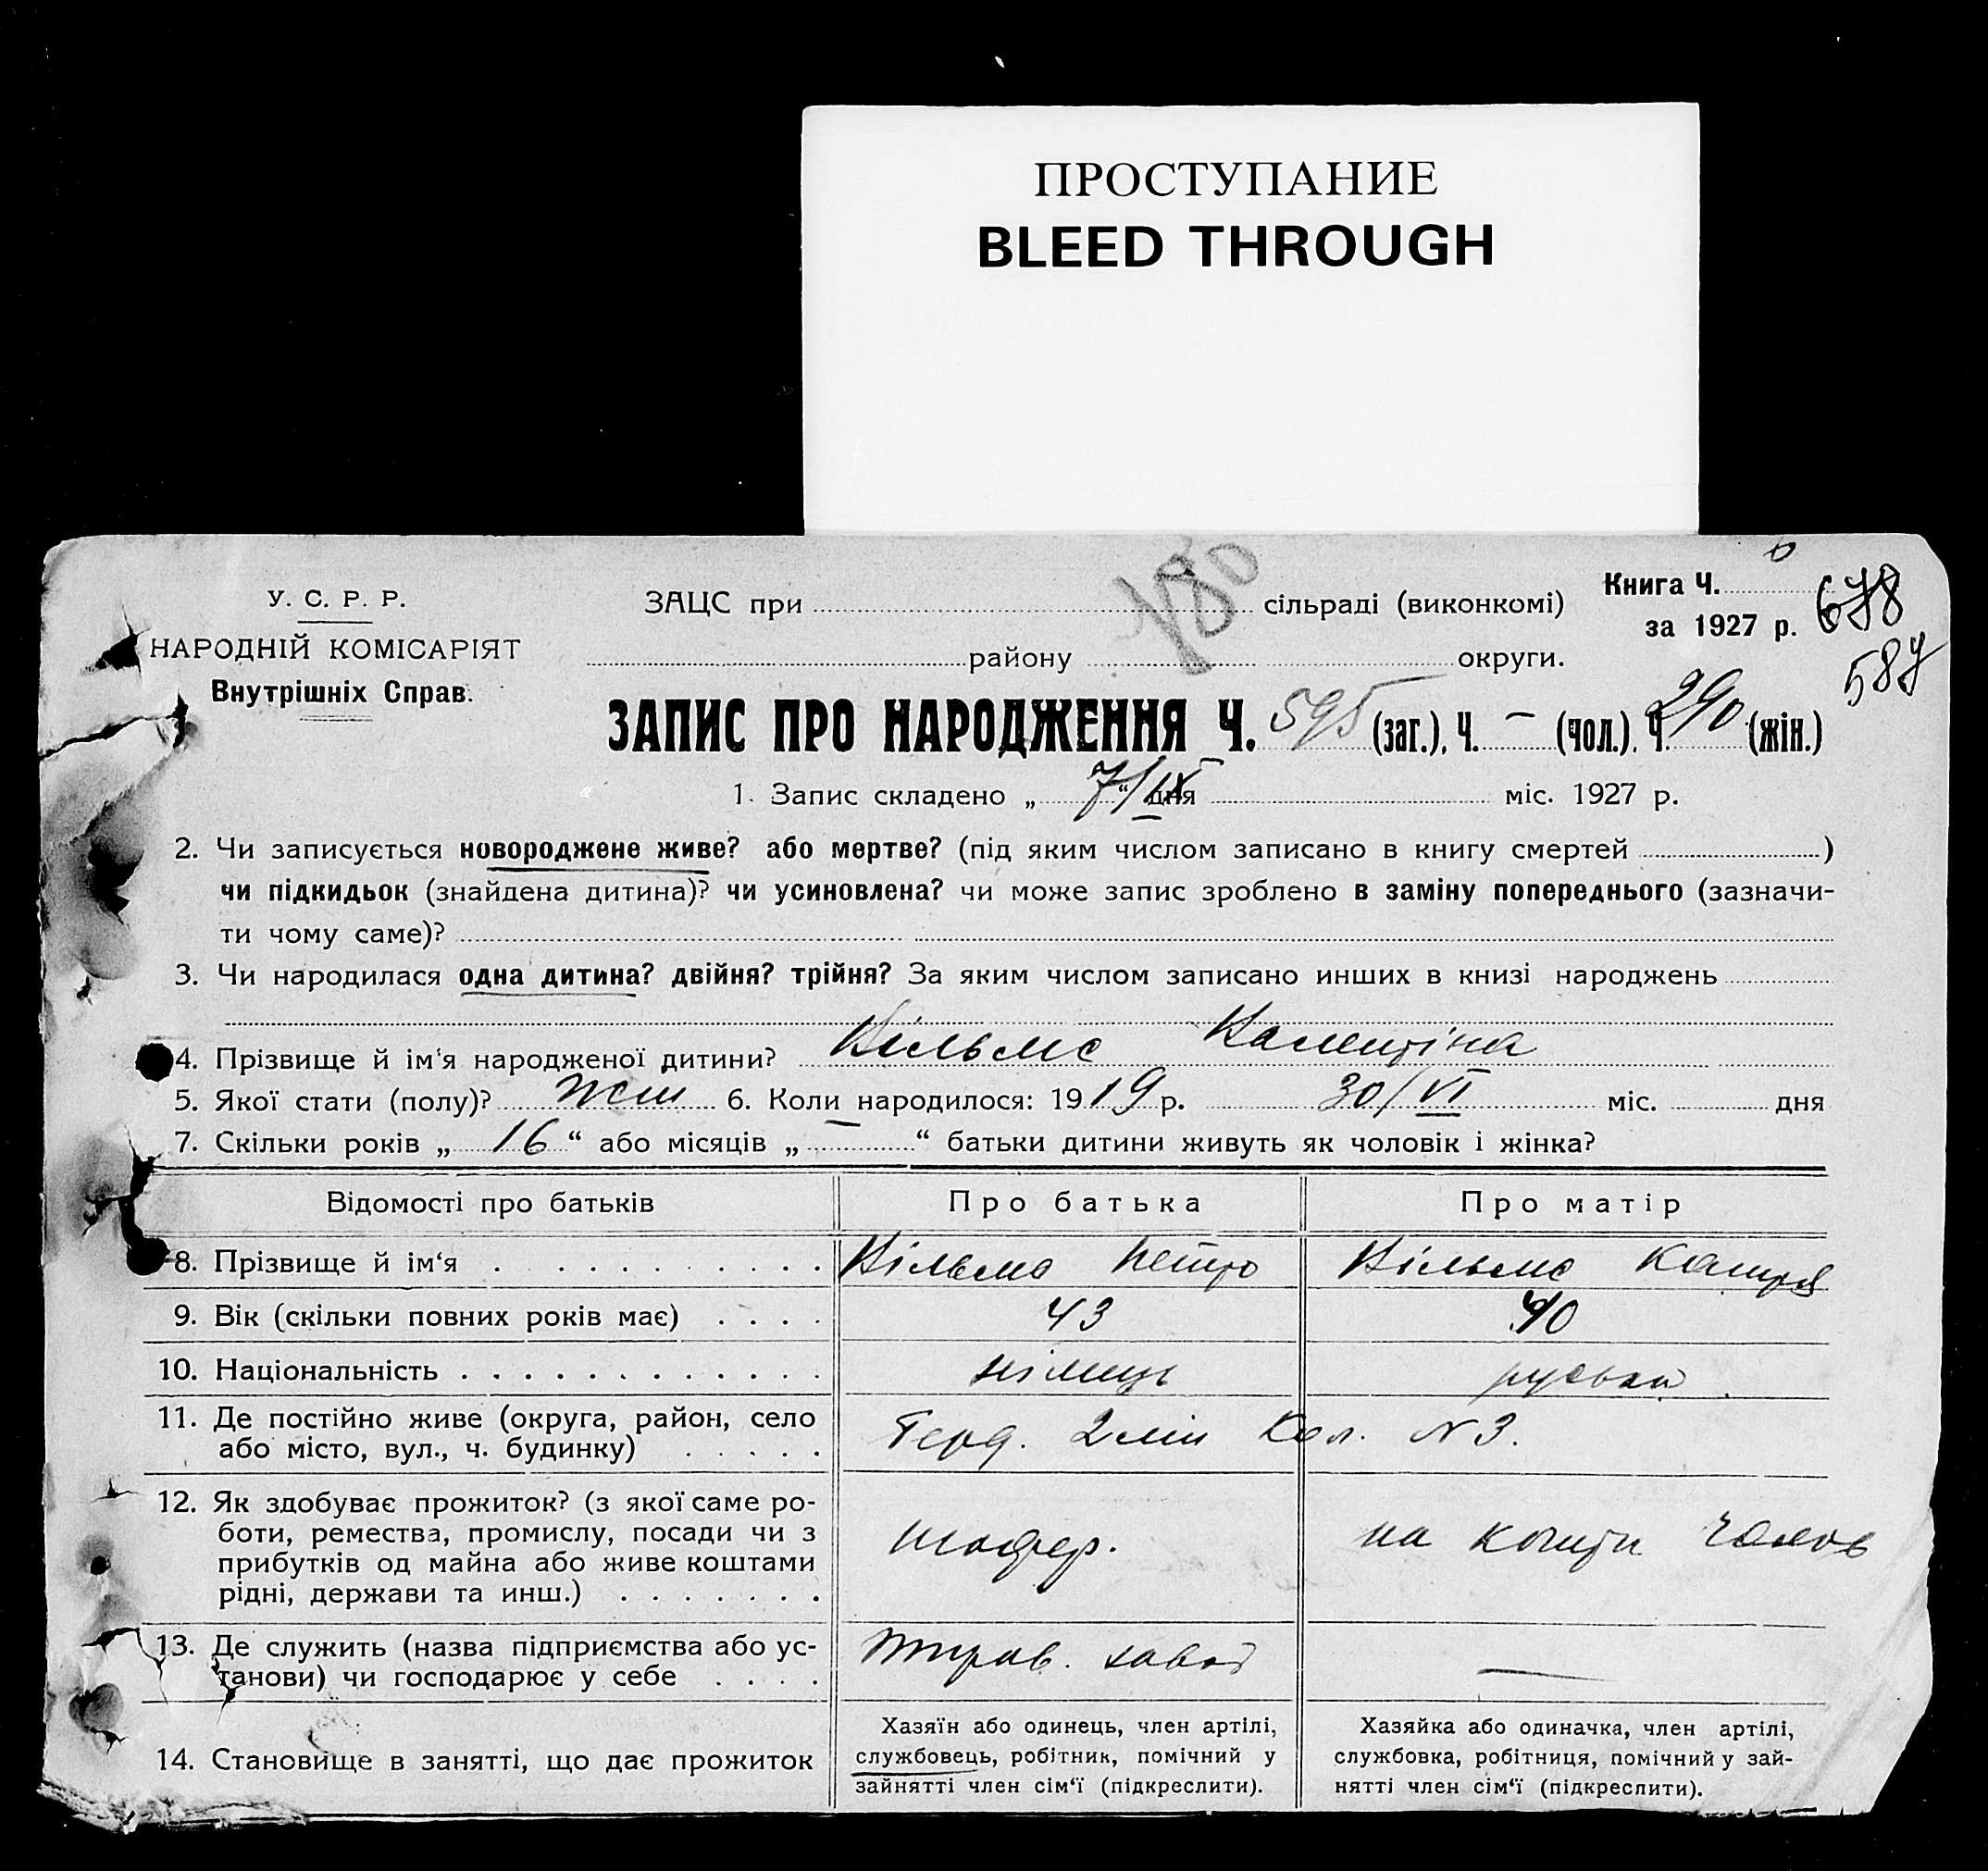 ПРОСТУПАНИЕ
BLEED THROUGH
У. С. Р. Р.
НАРОДНІЙ КОМІСАРІЯТ
Внутрішніх Справ.
180
ЗАЦС при сільраді (виконкомі)
району округи.
Книга Ч. 6
за 1927 р. 678
587
ЗАПИС ПРО НАРОДЖЕННЯ Ч. 595 (заг.), Ч. – (чол.), Ч. 290 (жін.)
1. Запис складено „ 7/IX “ дня міс. 1927 р.
2. Чи записується новороджене живе? або мертве? (під яким числом записано в книгу смертей )
чи підкидьок (знайдена дитина)? чи усиновлена? чи може запис зроблено в заміну попереднього (зазначи-
ти чому саме)?
3. Чи народилася одна дитина? двійня? трійня? За яким числом записано инших в книзі народжень
4. Прізвище й ім'я народженої дитини? Вільмс Валентіна
5. Якої стати (полу)? жін 6. Коли народилося: 1919 р. 30/VI міс. дня
7. Скільки років „ 16 “ або місяців „ – “ батьки дитини живуть як чоловік і жінка?
Відомості про батьків Про батька Про матір
8. Прізвище й ім‘я Вільмс Петро Вільмс Катря
9. Вік (скільки повних років має) 43 40
10. Національність німець руська
11. Де постійно живе (округа, район, село
або місто, вул., ч. будинку) 2 Кол. N 3.
12. Як здобуває прожиток? (з якої саме ро-
боти, ремества, промислу, посади чи з
прибутків од майна або живе коштами
рідні, держави та инш.) шофер. на кошти чолов
13. Де служить (назва підприємства або ус-
танови) чи господарює у себе завод —
14. Становище в занятті, що дає прожиток
Хазяїн або одинець, член артілі,
службовець, робітник, помічний у
зайнятті член сім‘ї (підкреслити).
Хазяйка або одиначка, член артілі,
службовка, робітниця, помічний у зай-
нятті член сім‘ї (підкреслити).